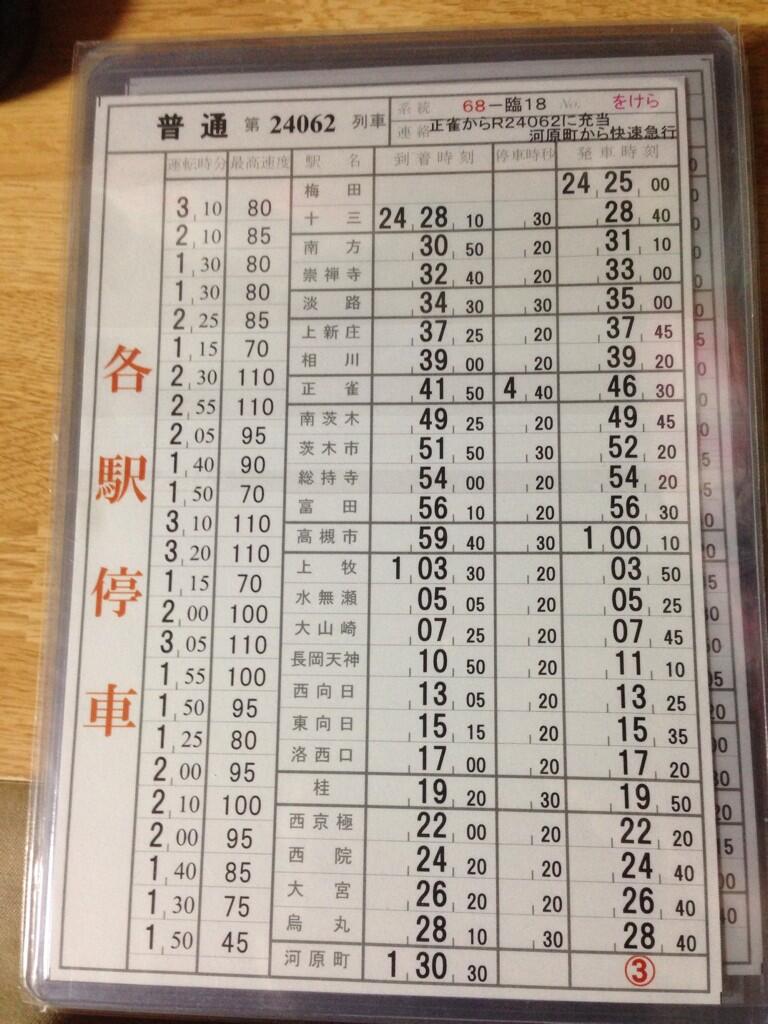 普通 第 24062 列車
系統 68-臨18 No. をけら
連絡 正雀からR24062に充当
河原町から快速急行
各駅停車
運転時分 最高速度 駅名 到着時刻 停車時秒 発車時刻
梅田 24 25 00
3 10 80
十三 24 28 10 30 28 40
2 10 85
南方 30 50 20 31 10
1 30 80
崇禅寺 32 40 20 33 00
1 30 80
淡路 34 30 30 35 00
2 25 85
上新庄 37 25 20 37 45
1 15 70
相川 39 00 20 39 20
2 30 110
正雀 41 50 4 40 46 30
2 55 110
南茨木 49 25 20 49 45
2 05 95
茨木市 51 50 30 52 20
1 40 90
総持寺 54 00 20 54 20
1 50 70
富田 56 10 20 56 30
3 10 110
高槻市 59 40 30 1 00 10
3 20 110
上牧 1 03 30 20 03 50
1 15 70
水無瀬 05 05 20 05 25
2 00 100
大山崎 07 25 20 07 45
3 05 110
長岡天神 10 50 20 11 10
1 55 100
西向日 13 05 20 13 25
1 50 95
東向日 15 15 20 15 35
1 25 80
洛西口 17 00 20 17 20
2 00 95
桂 19 20 30 19 50
2 10 100
西京極 22 00 20 22 20
2 00 95
西院 24 20 20 24 40
1 40 85
大宮 26 20 20 26 40
1 30 75
烏丸 28 10 30 28 40
1 50 45
河原町 1 30 30 ③